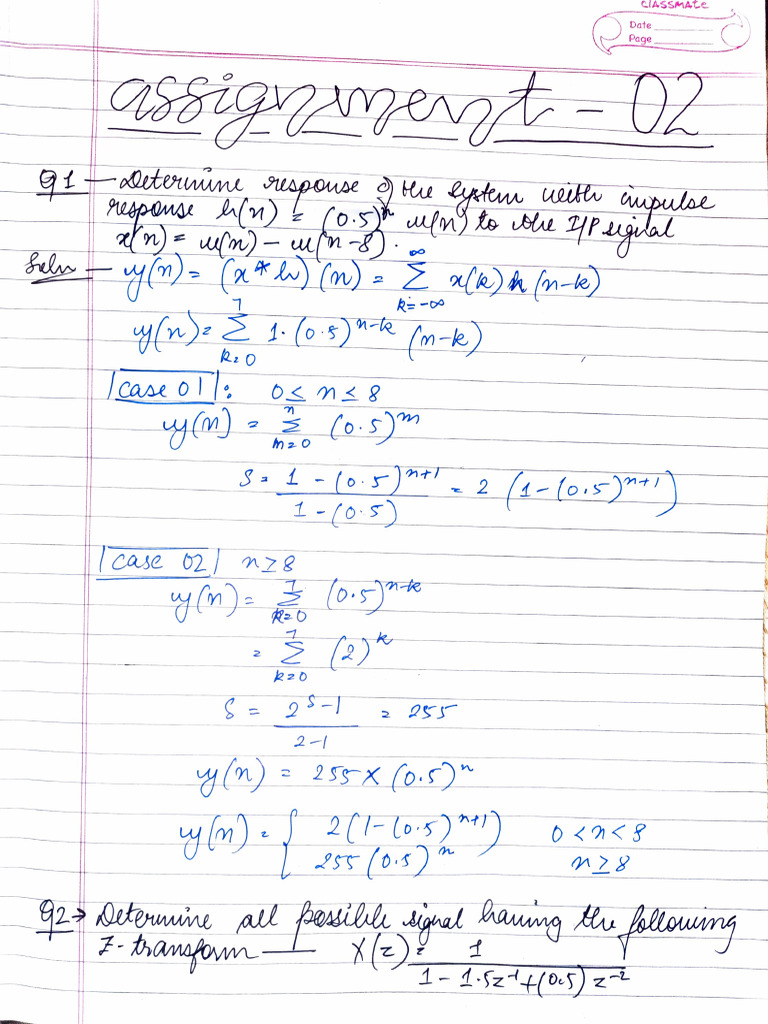 CLASSMATE
Date
Page
assignment - 02
Q1 — Determine response of the system with impulse
response h(n) = (0.5)^n u(n) to the I/P signal
x(n) = u(n) - u(n-8).
Soln — y(n) = (x * h)(n) = ∞∑k=-∞ x(k) h(n-k)
y(n) = 7∑k=0 1·(0.5)^n-k (n-k)
case 01 : 0 ≤ n ≤ 8
y(n) = n∑m=0 (0.5)^m
S = 1 - (0.5)^n+1 / 1 - (0.5) = 2 (1 - (0.5)^n+1)
case 02 n ≥ 8
y(n) = 7∑k=0 (0.5)^n-k
= 7∑k=0 (2)^k
S = 2^8 - 1 / 2 - 1 = 255
y(n) = 255 × (0.5)^n
y(n) = { 2(1 - (0.5)^n+1) 0 < n < 8
255 (0.5)^n n ≥ 8
Q2 → Determine all possible signal having the following
Z-transform — X(z) = 1 / 1 - 1.5z^-1 + (0.5) z^-2